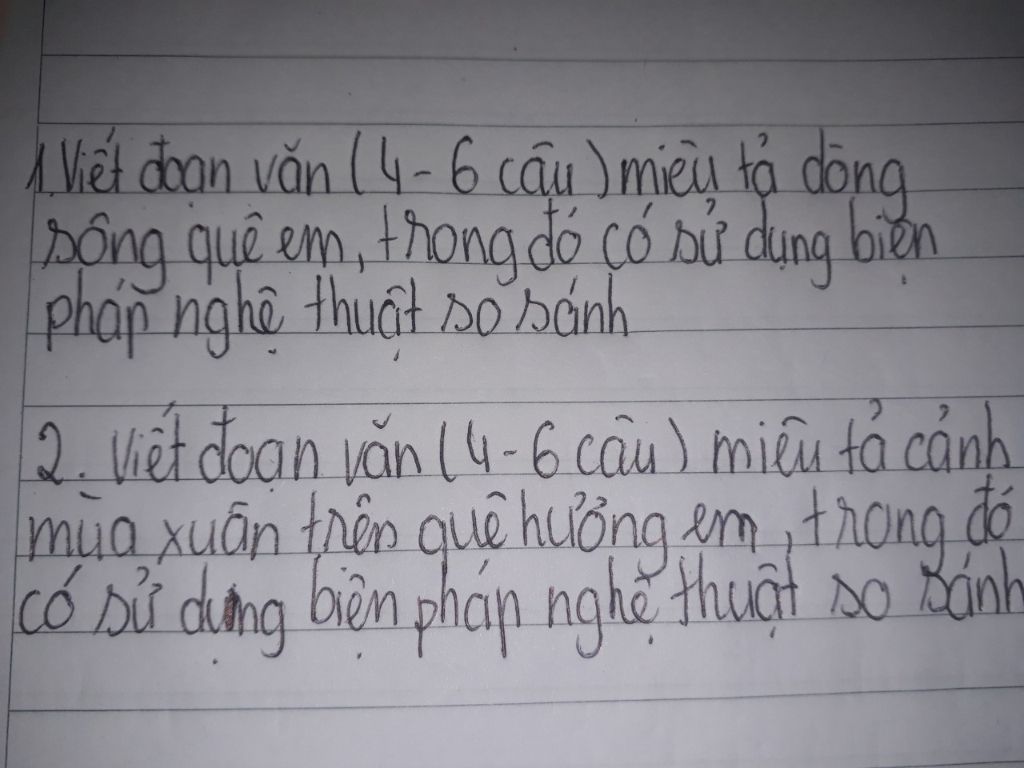 1. Viết đoạn văn (4-6 câu) miêu tả dòng
sông quê em, trong đó có sử dụng biện
pháp nghệ thuật so sánh
2. Viết đoạn văn (4-6 câu) miêu tả cảnh
mùa xuân trên quê hương em, trong đó
có sử dụng biện pháp nghệ thuật so sánh